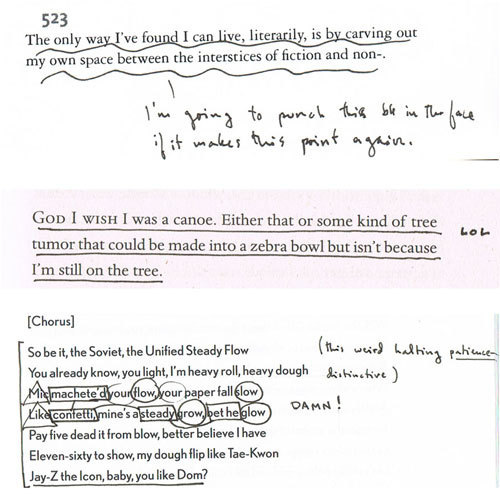 523
The only way I've found I can live, literarily, is by carving out
my own space between the interstices of fiction and non-.
I'm going to punch this bk in the face
if it makes this point again.
GOD I WISH I was a canoe. Either that or some kind of tree
LOL
tumor that could be made into a zebra bowl but isn't because
I'm still on the tree.
[Chorus]
So be it, the Soviet, the Unified Steady Flow
(this weird halting patience
You already know, you light, I'm heavy roll, heavy dough
distinctive)
Mic machete'd your flow, your paper fall slow
DAMN!
Like confetti, mine's a steady grow, bet he glow
Pay five dead it from blow, better believe I have
Eleven-sixty to show, my dough flip like Tae-Kwon
Jay-Z the Icon, baby, you like Dom?